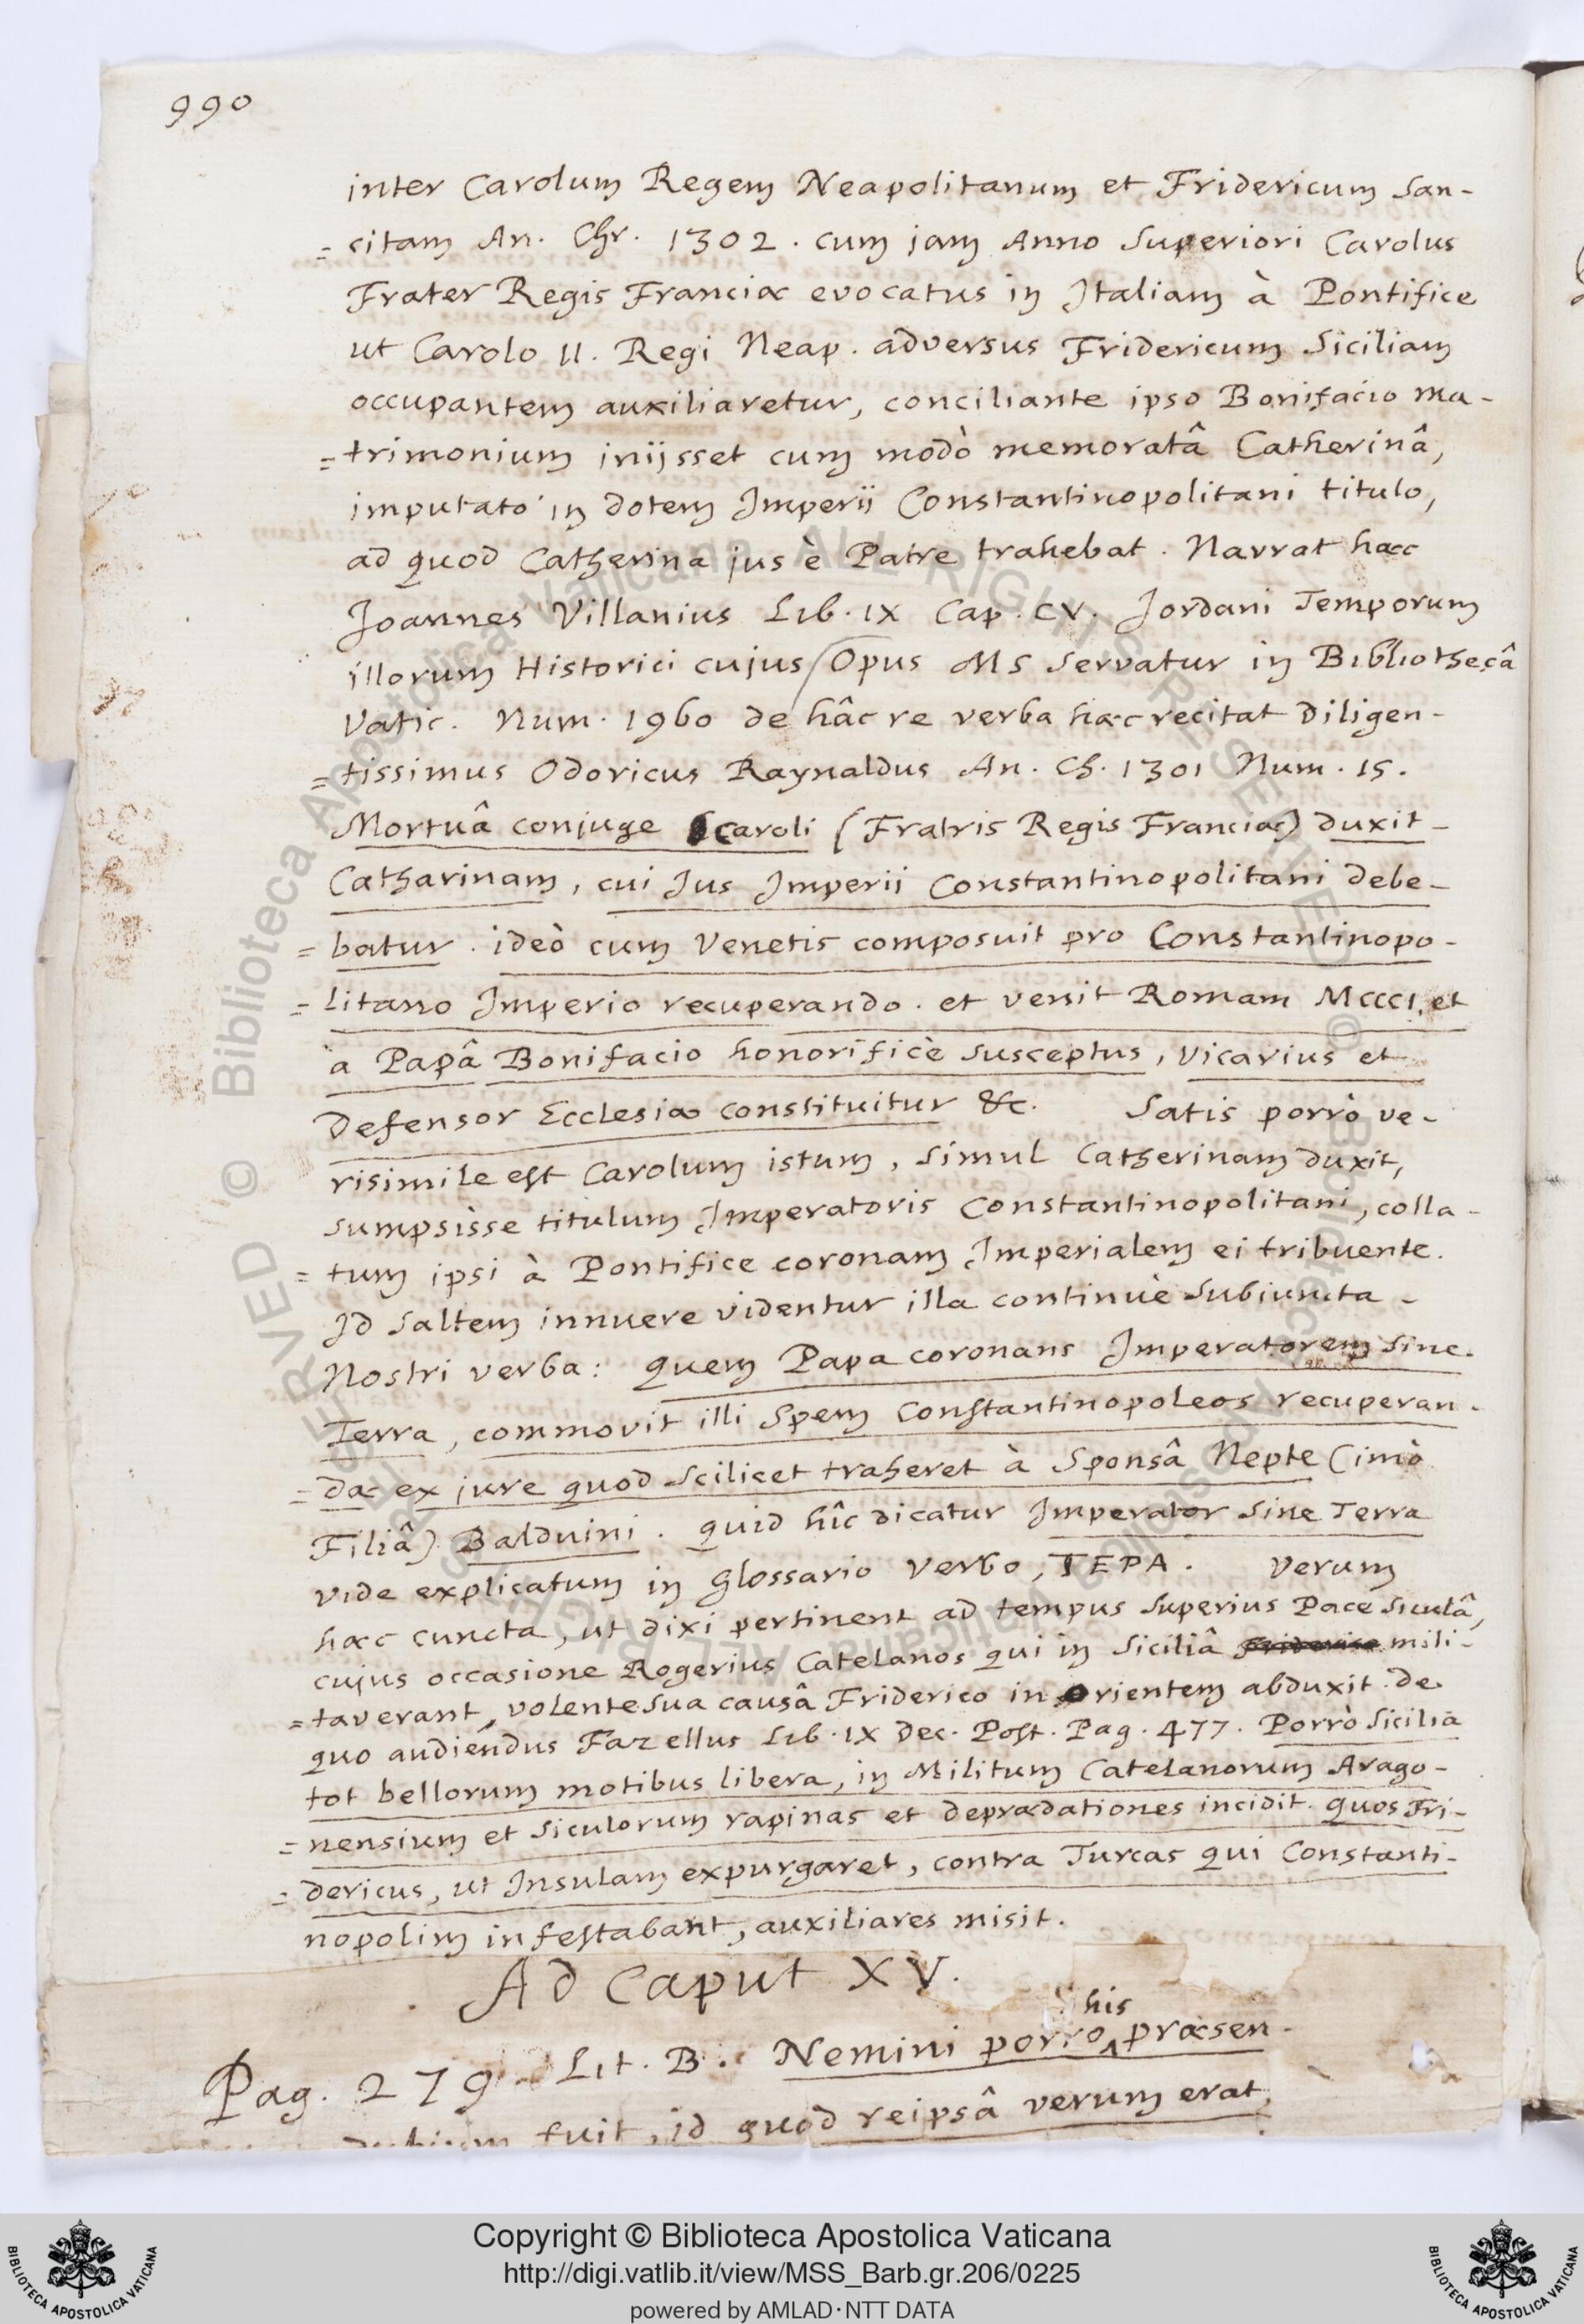 990
inter Carolum Regem Neapolitanum et Fridericum San-
=citam An. Chr. 1302. cum jam Anno Superiori Carolus
Frater Regis Franciæ evocatus in Italiam à Pontifice
ut Carolo II. Regi Neap. adversus Fridericum Siciliam
occupantem auxiliaretur, conciliante ipso Bonifacio ma-
=trimonium inijsset cum modò memoratâ Catherinâ,
imputato in dotem Imperii Constantinopolitani titulo,
ad quod Catherina jus è Patre trahebat. Narrat hæc
Joannes Villanius Lib. IX Cap. CV. Jordani Temporum
illorum Historici cujus Opus MS Servatur in Bibliothecâ
Vatic. Num. 1960 de hâc re verba hæc recitat Diligen-
=tissimus Odoricus Raynaldus An. Ch. 1301 Num. 15.
Mortuâ conjuge Caroli (Fratris Regis Franciæ) duxit-
Catharinam, cui Jus Imperii Constantinopolitani debe-
=batur. ideò cum Venetis composuit pro Constantinopo-
=litano Imperio recuperando. et venit Romam MCCCI, et
a Papâ Bonifacio honorificè susceptus, Vicarius et
Defensor Ecclesiæ constituitur &c. Satis porrò ve-
risimile est Carolum istum, simul Catherinam duxit,
sumpsisse titulum Imperatoris Constantinopolitani, colla-
=tum ipsi à Pontifice coronam Imperialem ei tribuente.
Id saltem innuere videntur illa continuè Subiuncta-
Nostri verba: quem Papa coronans Imperatorem Sine.
Terra, commovit illi Spem Constantinopoleos recuperan-
=dæ ex jure quod Scilicet traheret à Sponsâ Nepte (imò
Filiâ) Balduini. quid hîc dicatur Imperator Sine Terra
vide explicatum in Glossario verbo, TEPA. Verum
hæc cuncta, ut dixi pertinent ad tempus Superius Pace Siculâ,
cujus occasione Rogerius Catelanos qui in Siciliâ Friderico mili-
=taverant, volente sua causâ Friderico in Orientem abduxit. de
quo audiendus Fazellus Lib. IX Dec. Post. Pag. 477. Porrò Sicilia
tot bellorum motibus libera, in Militum Catelanorum Arago-
=nensium et Siculorum rapinas et deprædationes incidit. quos Fri-
=dericus, ut Insulam expurgaret, contra Turcas qui Constanti-
nopolim infestabant, auxiliares misit.
Ad Caput XV.
his
Pag. 279. Lit. B. Nemini porro præsen-
dubium fuit, id quod reipsâ verum erat,
© Biblioteca Apostolica Vaticana ALL RIGHTS RESERVED © Biblioteca Apostolica Vaticana ALL RIGHTS RESERVED
Copyright © Biblioteca Apostolica Vaticana
http://digi.vatlib.it/view/MSS_Barb.gr.206/0225
powered by AMLAD·NTT DATA
BIBLIOTECA APOSTOLICA VATICANA
BIBLIOTECA APOSTOLICA VATICANA